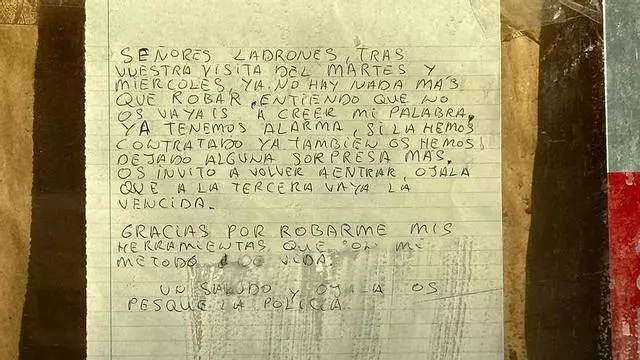 SEÑORES LADRONES, TRAS
VUESTRA VISITA DEL MARTES Y
MIERCOLES, YA NO HAY NADA MAS
QUE ROBAR, ENTIENDO QUE NO
OS VAYAIS A CREER MI PALABRA.
YA TENEMOS ALARMA, SI LA HEMOS
CONTRATADO YA TAMBIEN OS HEMOS
DEJADO ALGUNA SORPRESA MAS.
OS INVITO A VOLVER A ENTRAR, OJALA
QUE A LA TERCERA VAYA LA
VENCIDA.
GRACIAS POR ROBARME MIS
HERRAMIENTAS, QUE SON MI
METODO DE VIDA
UN SALUDO Y OJALA OS
PESQUE LA POLICIA